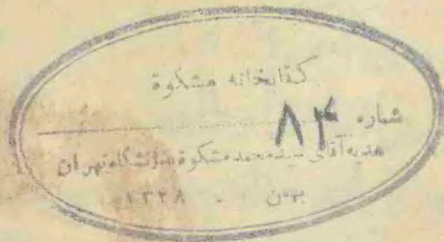 کتابخانه مشکوة
شماره ۸۴
هدیه آقای سید محمد مشکوة بدانشگاه تهران
بهمن - ۱۳۲۸